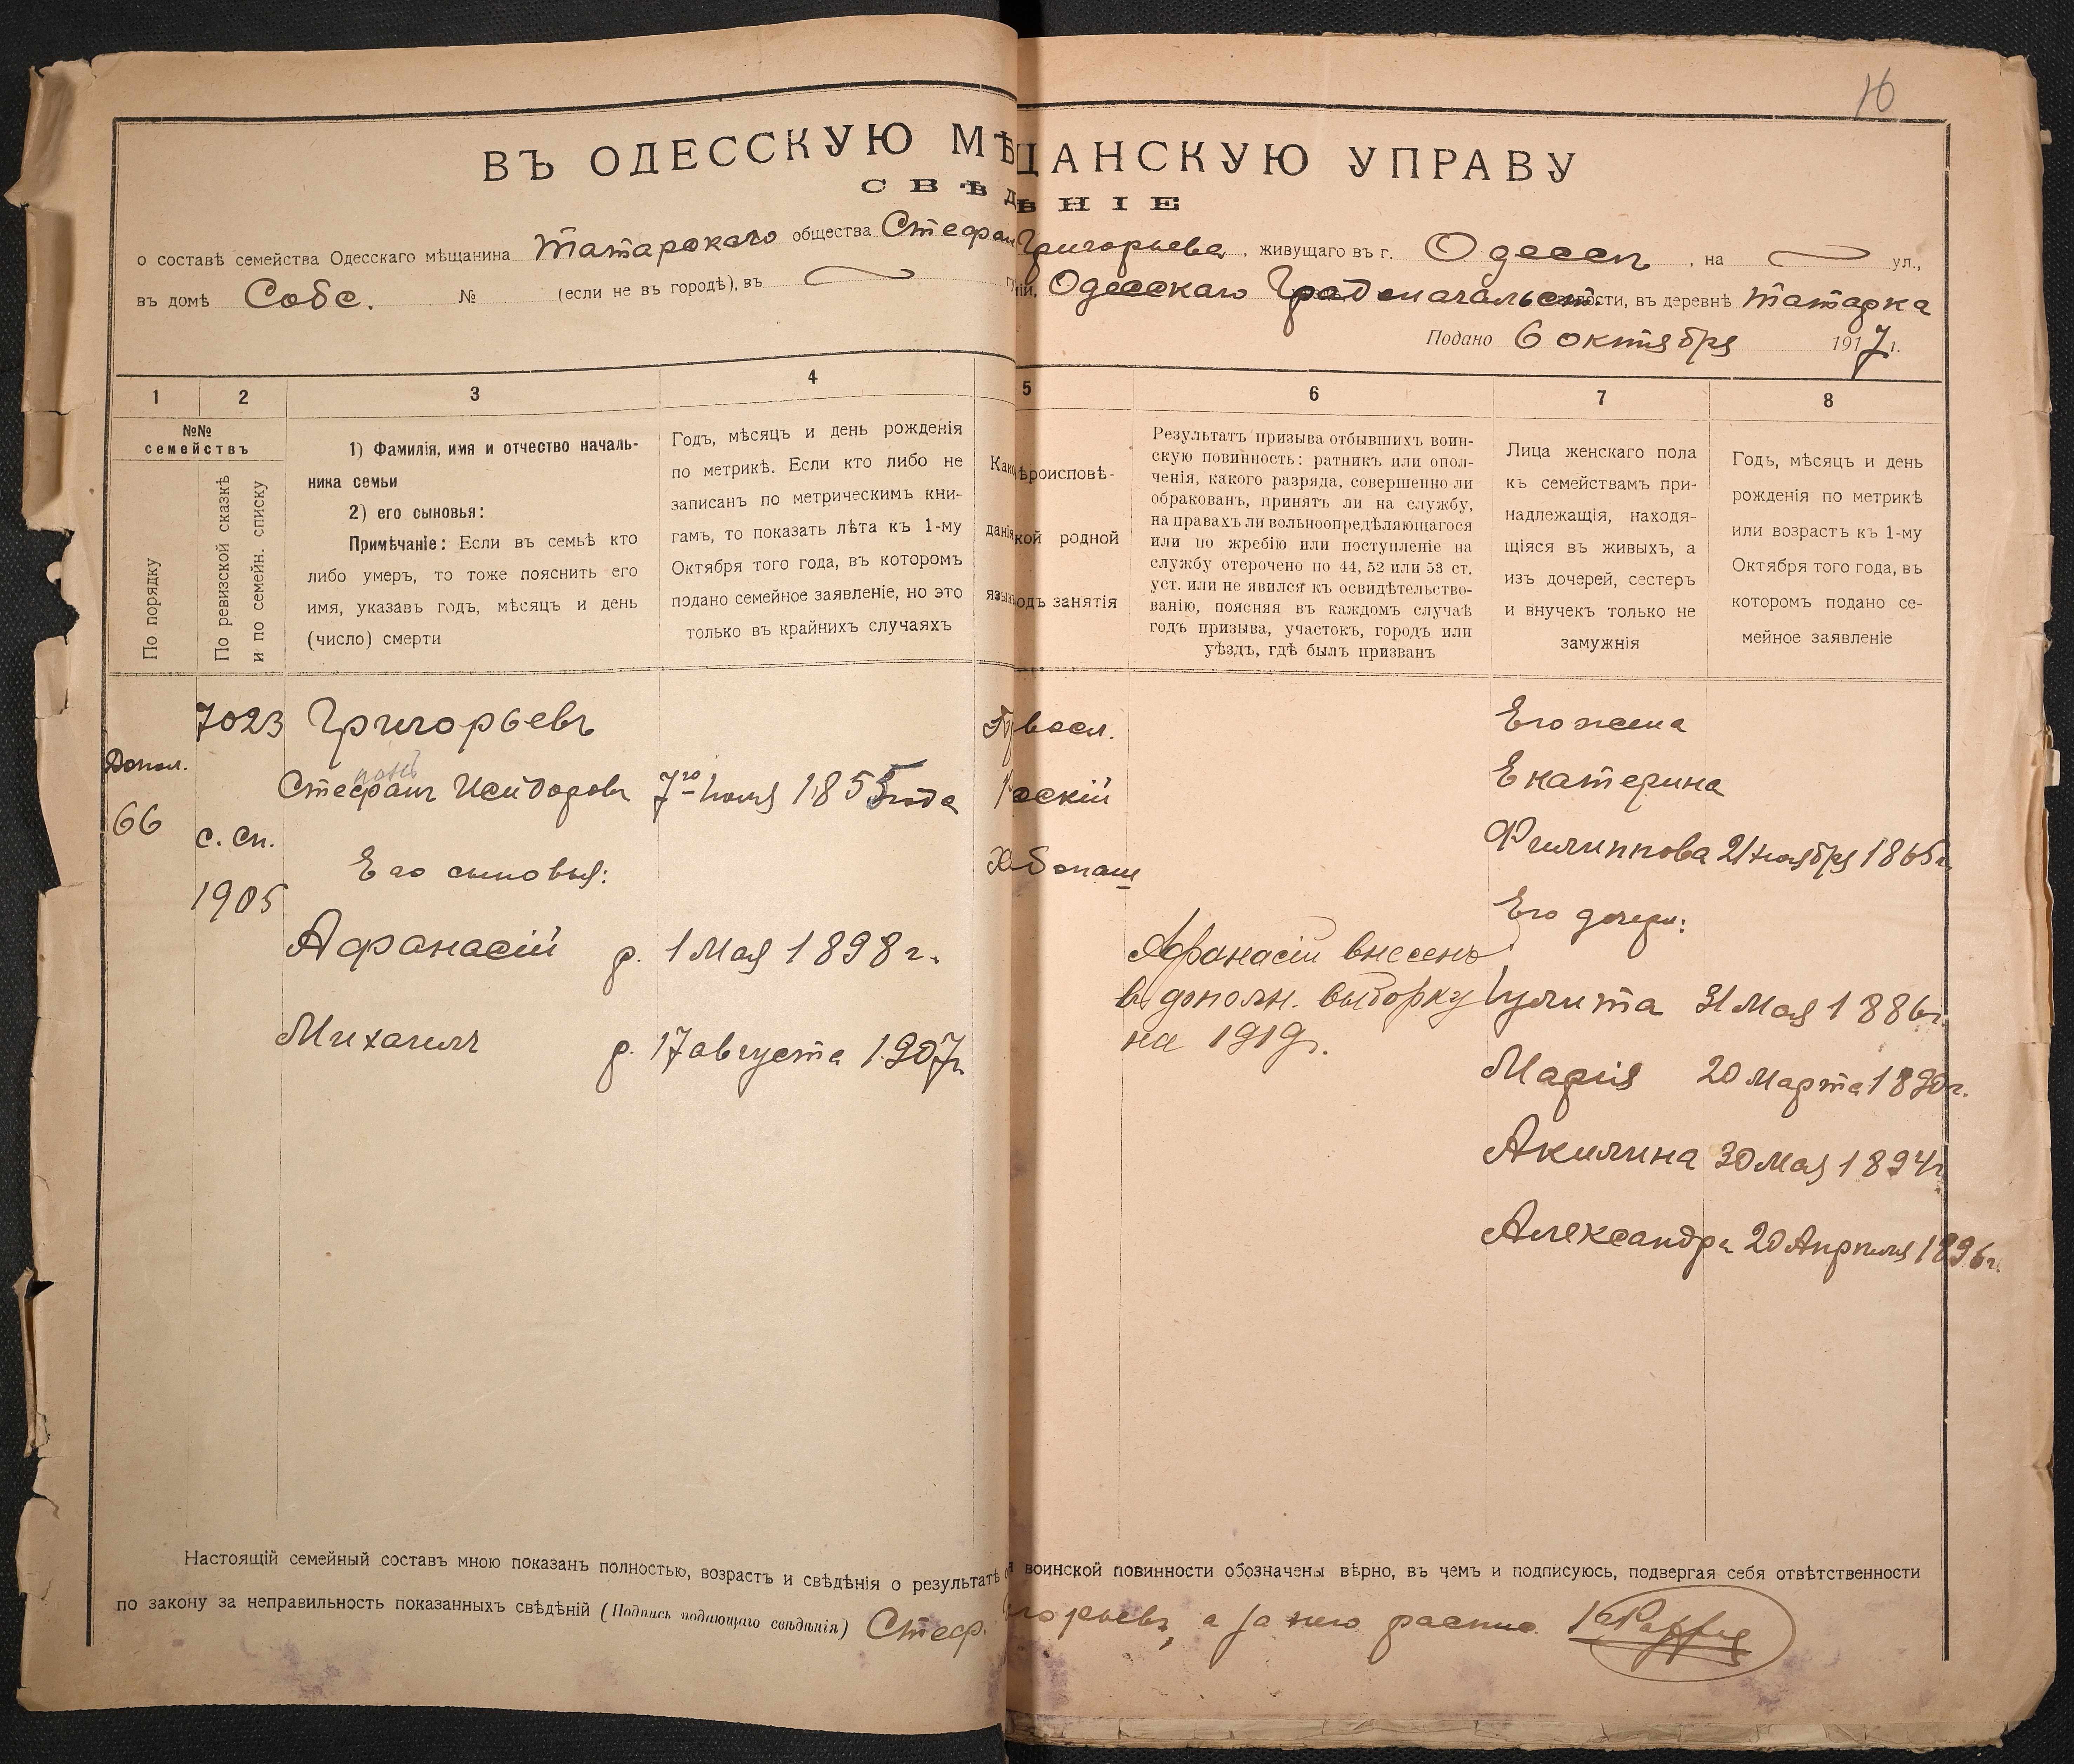 16
ВЪ ОДЕССКУЮ МѢЩАНСКУЮ УПРАВУ
СВѢДѢНІЕ
о составѣ семейства Одесскаго мѣщанина Татарскаго общества Стефан Григорьева, живущаго въ г. Одессѣ, на ул.,
въ домѣ Собс. № (если не въ городѣ), въ ній, Одесскаго Градоначальст. волости, въ деревнѣ Татарка
Подано 6 октября 1917 г.
1 2 3 4 5 6 7 8
№№ семействъ
По порядку
По ревизской сказкѣ
и по семейн. списку
1) Фамилія, имя и отчество началь-
ника семьи
2) его сыновья:
Примѣчаніе: Если въ семьѣ кто
либо умеръ, то тоже пояснить его
имя, указавъ годъ, мѣсяцъ и день
(число) смерти
Годъ, мѣсяцъ и день рожденія
по метрикѣ. Если кто либо не
записанъ по метрическимъ кни-
гамъ, то показать лѣта къ 1-му
Октября того года, въ которомъ
подано семейное заявленіе, но это
только въ крайнихъ случаяхъ
Как ѣроисповѣ-
данія кой родной
язык одъ занятія
Результатъ призыва отбывшихъ воин-
скую повинность: ратникъ или опол-
ченія, какого разряда, совершенно ли
обракованъ, принятъ ли на службу,
на правахъ ли вольноопредѣляющагося
или по жребію или поступленіе на
службу отсрочено по 44, 52 или 53 ст.
уст. или не явился къ освидѣтельство-
ванію, поясняя въ каждомъ случаѣ
годъ призыва, участокъ, городъ или
уѣздъ, гдѣ былъ призванъ
Лица женскаго пола
къ семействамъ при-
надлежащія, находя-
щіяся въ живыхъ, а
изъ дочерей, сестеръ
и внучекъ только не
замужнія
Годъ, мѣсяцъ и день
рожденія по метрикѣ
или возрастъ къ 1-му
Октября того года, въ
которомъ подано се-
мейное заявленіе
7023 Григорьевъ
Допол.
66
с. сп.
1905
Стефанъ Исидоровъ 7го Іюля 1855 года
Его сыновья:
Афанасій р. 1 Мая 1898 г.
Михаилъ р. 17 августа 1907 г.
Правосл.
Русскій
Хлѣбопаш
Афанасій внесенъ
въ дополн. выборку
на 1919 г.
Его жена
Екатерина
Филиппова 21 ноября 1865 г.
Его дочери:
Іулита 31 Мая 1886 г.
Марія 20 Марта 1890 г.
Акилина 30 Мая 1894 г.
Александра 20 Апрѣля 1896 г.
Настоящій семейный составъ мною показанъ полностью, возрастъ и свѣдѣнія о результатѣ воинской повинности обозначены вѣрно, въ чемъ и подписуюсь, подвергая себя отвѣтственности
по закону за неправильность показанныхъ свѣдѣній (Подпись подающаго свѣдѣнія) Стеф. Григорьевъ, а за него распис.